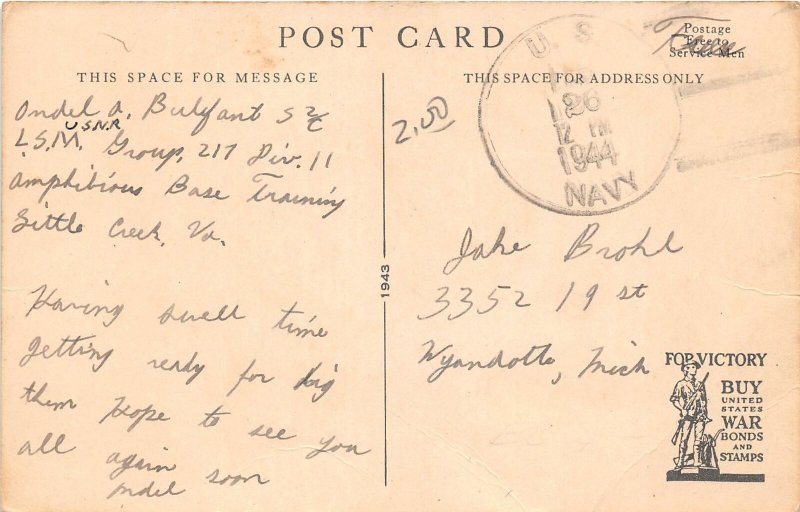 POST CARD
THIS SPACE FOR MESSAGE
Ondel A. Bulifant S 2/C
U.S.N.R
L.S.M. Group, 217 Div. 11
Amphibious Base Training
Little Creek, Va.
Having swell time
getting ready for big
them Hope to see you
all again soon
Ondel
1943
2.00
THIS SPACE FOR ADDRESS ONLY
Postage
Free to
Service Men
Free
U. S.
26
12 PM
1944
NAVY
Jake Brohl
3352 19 st
Wyandotte, Mich
FOR VICTORY
BUY
UNITED
STATES
WAR
BONDS
AND
STAMPS